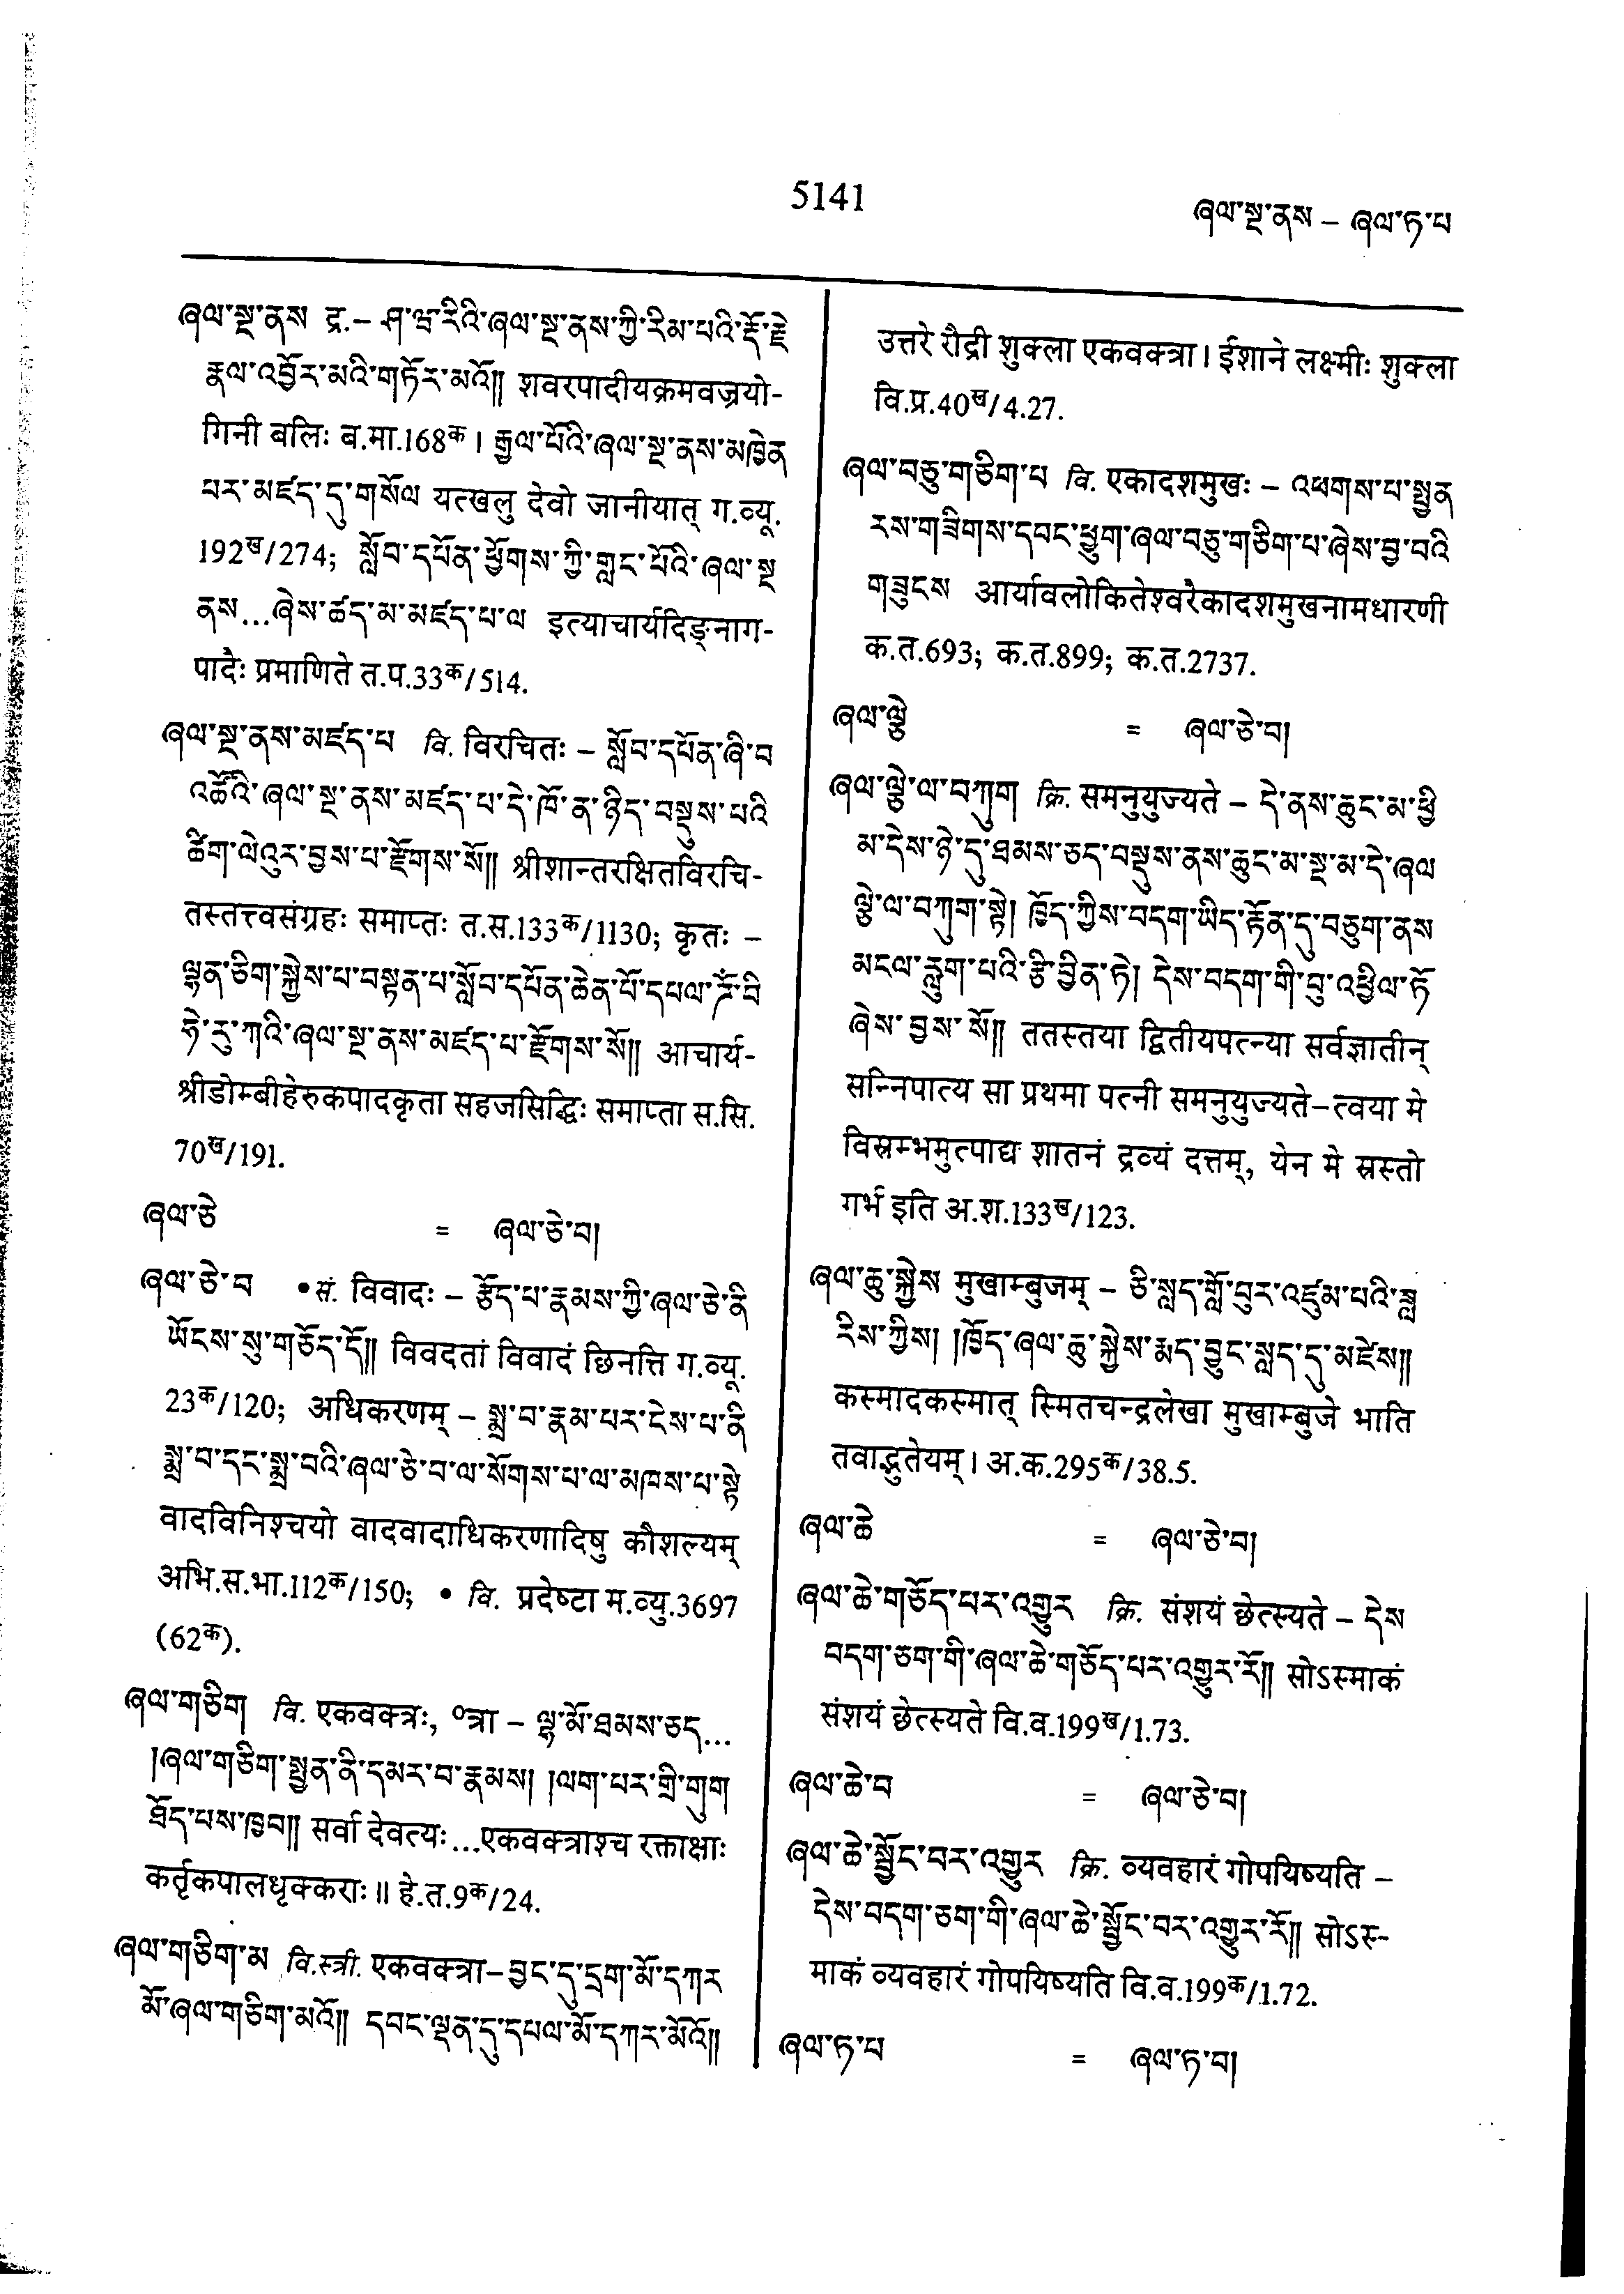 5141
ཞལ་སྔ་ནས – ཞལ་ཏ་པ
ཞལ་སྔ་ནས द्र.– ཤ་ཝ་རིའི་ཞལ་སྔ་ནས་ཀྱི་རིམ་པའི་རྡོ་རྗེ
རྣལ་འབྱོར་མའི་གཏོར་མའོ༎ शवरपादीयक्रमवज्रयो-
गिनी बलिः ब.मा.168क। རྒྱལ་པོའི་ཞལ་སྔ་ནས་མཁྱེན
པར་མཛད་དུ་གསོལ यत्खलु देवो जानीयात् ग.व्यू.
192ख/274; སློབ་དཔོན་ཕྱོགས་ཀྱི་གླང་པོའི་ཞལ་སྔ
ནས...ཞེས་ཚད་མ་མཛད་པ་ལ इत्याचार्यदिङ्नाग-
पादैः प्रमाणिते त.प.33क/514.
ཞལ་སྔ་ནས་མཛད་པ वि. विरचितः – སློབ་དཔོན་ཞི་བ
འཚོའི་ཞལ་སྔ་ནས་མཛད་པ་དེ་ཁོ་ན་ཉིད་བསྡུས་པའི
ཚིག་ལེའུར་བྱས་པ་རྫོགས་སོ༎ श्रीशान्तरक्षितविरचि-
तस्तत्त्वसंग्रहः समाप्तः त.स.133क/1130; कृतः –
ལྷན་ཅིག་སྐྱེས་པ་བསྟན་པ་སློབ་དཔོན་ཆེན་པོ་དཔལ་ཌོཾ་བི
ཧེ་རུ་ཀའི་ཞལ་སྔ་ནས་མཛད་པ་རྫོགས་སོ༎ आचार्य-
श्रीडोम्बीहेरुकपादकृता सहजसिद्धिः समाप्ता स.सि.
70ख/191.
ཞལ་ཅེ = ཞལ་ཅེ་བ།
ཞལ་ཅེ་བ • सं. विवादः – རྩོད་པ་རྣམས་ཀྱི་ཞལ་ཅེ་ནི
ཡོངས་སུ་གཅོད་དོ༎ विवदतां विवादं छिनत्ति ग.व्यू.
23क/120; अधिकरणम् – སྨྲ་བ་རྣམ་པར་ངེས་པ་ནི
སྨྲ་བ་དང་སྨྲ་བའི་ཞལ་ཅེ་བ་ལ་སོགས་པ་ལ་མཁས་པ་སྟེ
वादविनिश्चयो वादवादाधिकरणादिषु कौशल्यम्
अभि.स.भा.112क/150; • वि. प्रदेष्टा म.व्यु.3697
(62क).
ཞལ་གཅིག वि. एकवक्त्रः, °त्रा – ལྷ་མོ་ཐམས་ཅད...
།ཞལ་གཅིག་སྤྱན་ནི་དམར་བ་རྣམས། །ལག་པར་གྲི་གུག
ཐོད་པས་ཁྱབ༎ सर्वा देवत्यः...एकवक्त्राश्च रक्ताक्षाः
कर्तृकपालधृक्कराः॥ हे.त.9क/24.
ཞལ་གཅིག་མ वि.स्त्री. एकवक्त्रा– བྱང་དུ་དྲག་མོ་དཀར
མོ་ཞལ་གཅིག་མའོ༎ དབང་ལྡན་དུ་དཔལ་མོ་དཀར་མོའོ༎
उत्तरे रौद्री शुक्ला एकवक्त्रा। ईशाने लक्ष्मीः शुक्ला
वि.प्र.40ख/4.27.
ཞལ་བཅུ་གཅིག་པ वि. एकादशमुखः – འཕགས་པ་སྤྱན
རས་གཟིགས་དབང་ཕྱུག་ཞལ་བཅུ་གཅིག་པ་ཞེས་བྱ་བའི
གཟུངས आर्यावलोकितेश्वरैकादशमुखनामधारणी
क.त.693; क.त.899; क.त.2737.
ཞལ་ལྕེ = ཞལ་ཅེ་བ།
ཞལ་ལྕེ་ལ་བཀུག क्रि. समनुयुज्यते – དེ་ནས་ཆུང་མ་ཕྱི
མ་དེས་ཉེ་དུ་ཐམས་ཅད་བསྡུས་ནས་ཆུང་མ་སྔ་མ་དེ་ཞལ
ལྕེ་ལ་བཀུག་སྟེ། ཁྱོད་ཀྱིས་བདག་ཡིད་རྟོན་དུ་བཅུག་ནས
མངལ་རླུག་པའི་རྩི་བྱིན་ཏེ། དེས་བདག་གི་བུ་འཕྱིལ་ཏོ
ཞེས་བྱས་སོ༎ ततस्तया द्वितीयपत्न्या सर्वज्ञातीन्
सन्निपात्य सा प्रथमा पत्नी समनुयुज्यते–त्वया मे
विस्रम्भमुत्पाद्य शातनं द्रव्यं दत्तम्, येन मे स्रस्तो
गर्भ इति अ.श.133ख/123.
ཞལ་ཆུ་སྐྱེས मुखाम्बुजम् – ཅི་སླད་གློ་བུར་འཛུམ་པའི་ཟླ
རིས་ཀྱིས། །ཁྱོད་ཞལ་ཆུ་སྐྱེས་རྨད་བྱུང་སླད་དུ་མཛེས༎
कस्मादकस्मात् स्मितचन्द्रलेखा मुखाम्बुजे भाति
तवाद्भुतेयम्। अ.क.295क/38.5.
ཞལ་ཆེ = ཞལ་ཅེ་བ།
ཞལ་ཆེ་གཅོད་པར་འགྱུར क्रि. संशयं छेत्स्यते – དེས
བདག་ཅག་གི་ཞལ་ཆེ་གཅོད་པར་འགྱུར་རོ༎ सोऽस्माकं
संशयं छेत्स्यते वि.व.199ख/1.73.
ཞལ་ཆེ་བ = ཞལ་ཅེ་བ།
ཞལ་ཆེ་སྦྱོང་བར་འགྱུར क्रि. व्यवहारं गोपयिष्यति –
དེས་བདག་ཅག་གི་ཞལ་ཆེ་སྦྱོང་བར་འགྱུར་རོ༎ सोऽस्-
माकं व्यवहारं गोपयिष्यति वि.व.199क/1.72.
ཞལ་ཏ་པ = ཞལ་ཏ་བ།